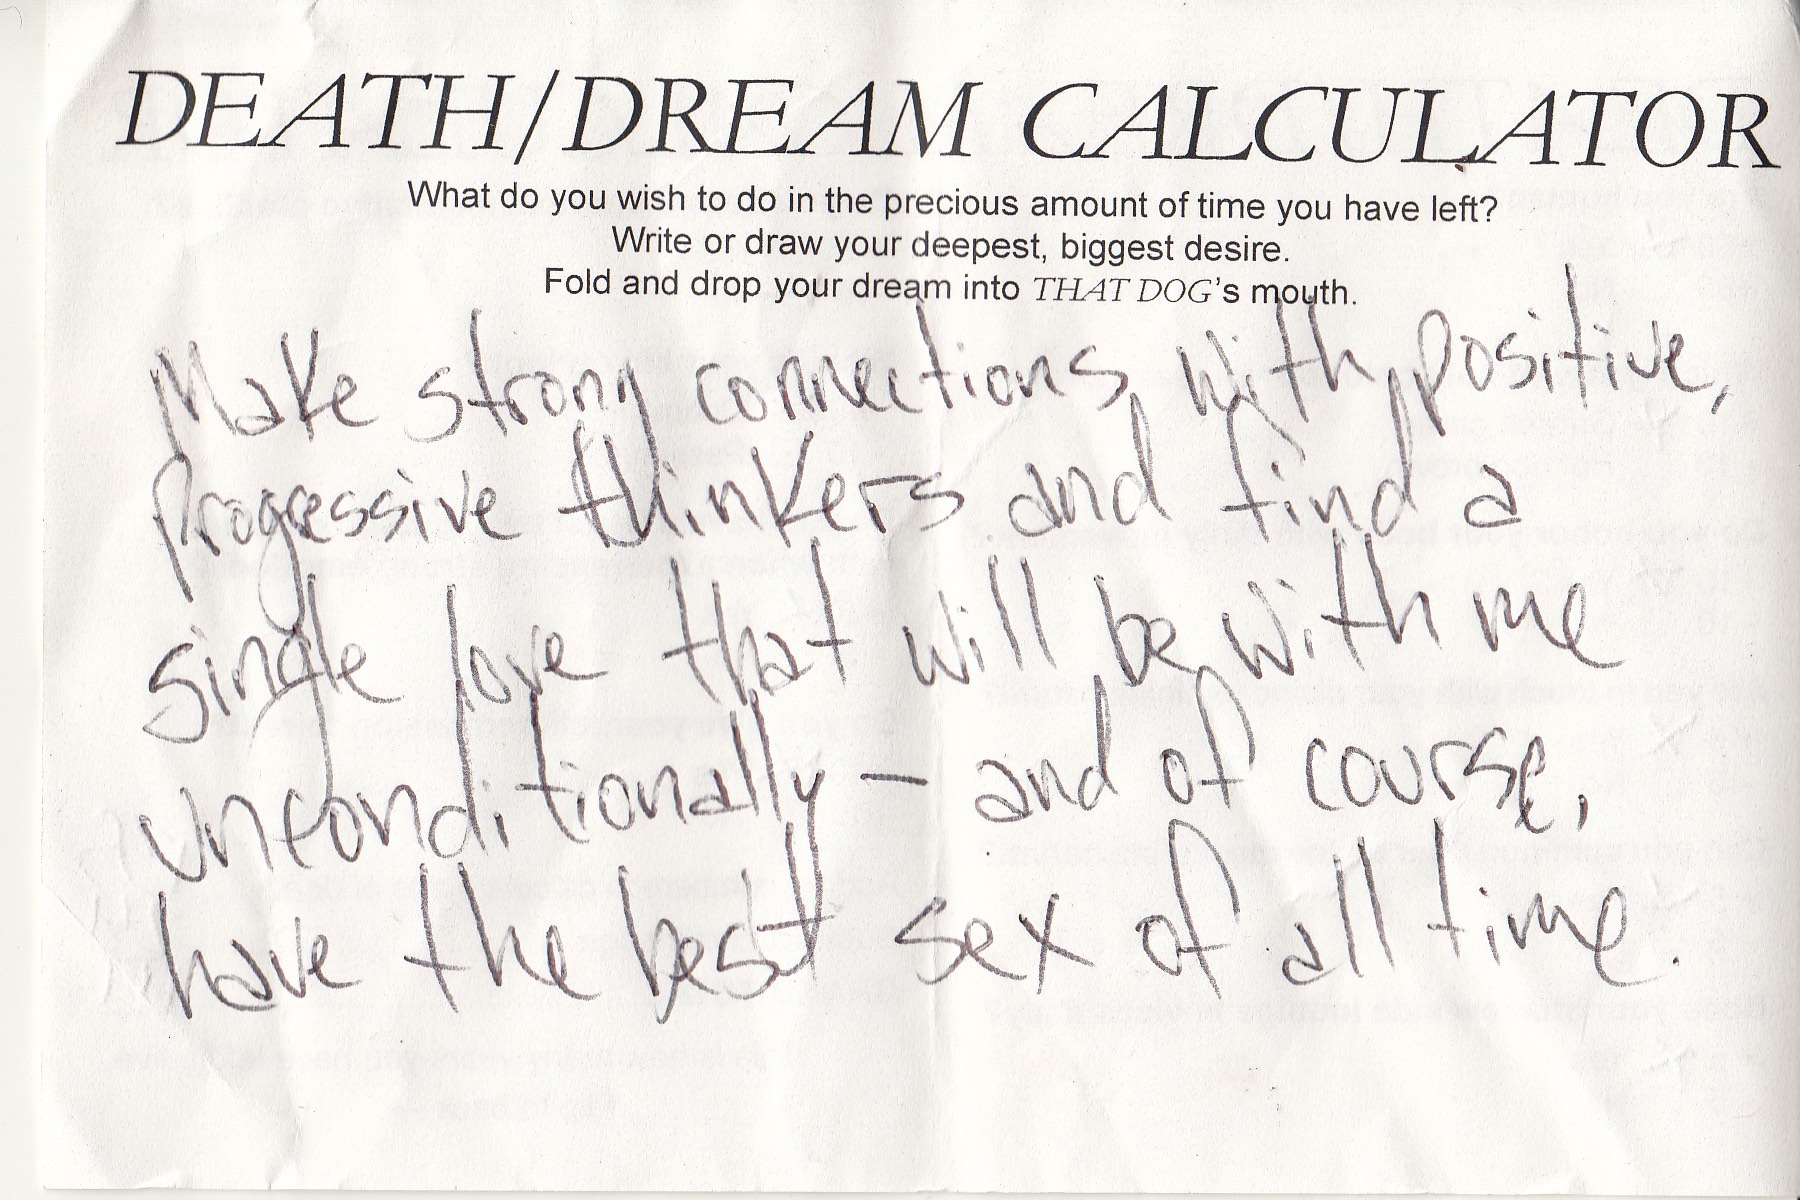 DEATH/DREAM CALCULATOR
What do you wish to do in the precious amount of time you have left?
Write or draw your deepest, biggest desire.
Fold and drop your dream into THAT DOG's mouth.
Make strong connections with positive,
progressive thinkers and find a
single love that will be with me
unconditionally — and of course,
have the best sex of all time.